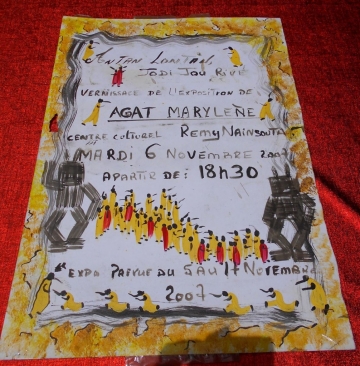 Antan Lontan,
Jodi Jou Rivé
VERNISSAGE DE L'EXPOSITION DE:
AGAT MARYLENE
CENTRE CULTUREL REMY NAINSOUTA
MARDI 6 NOVEMBRE 2007
A PARTIR DE: 18h30
EXPO PREVUE DU 5 AU 17 NOVEMBRE
2007